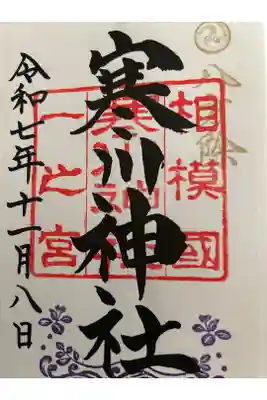 八方除
相模國
寒川神社
一之宮
令和七年十一月八日